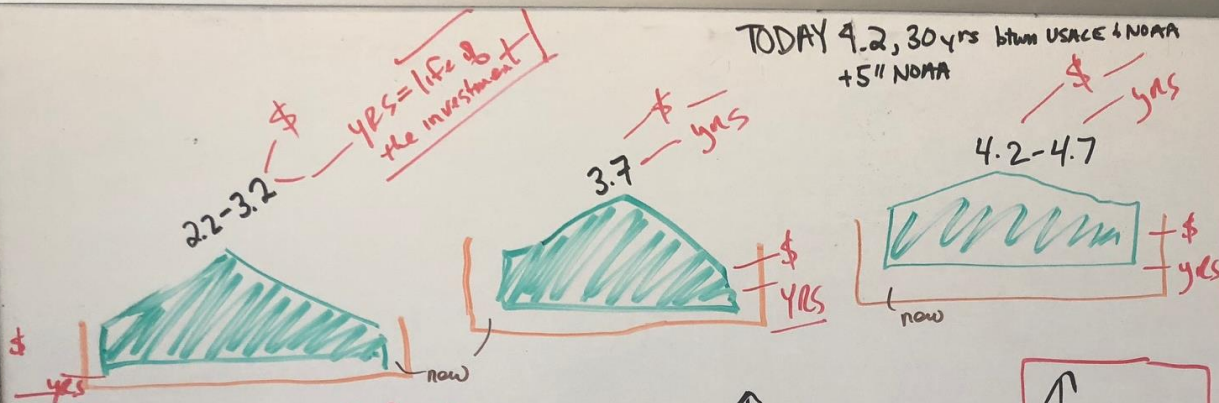 TODAY 4.2, 30 yrs btwn USACE & NOAA
+5" NOAA
$
YRS = life of
the investment
2.2-3.2
$
yrs
new
$
yrs
3.7
$
YRS
$
yrs
4.2-4.7
$
yrs
new